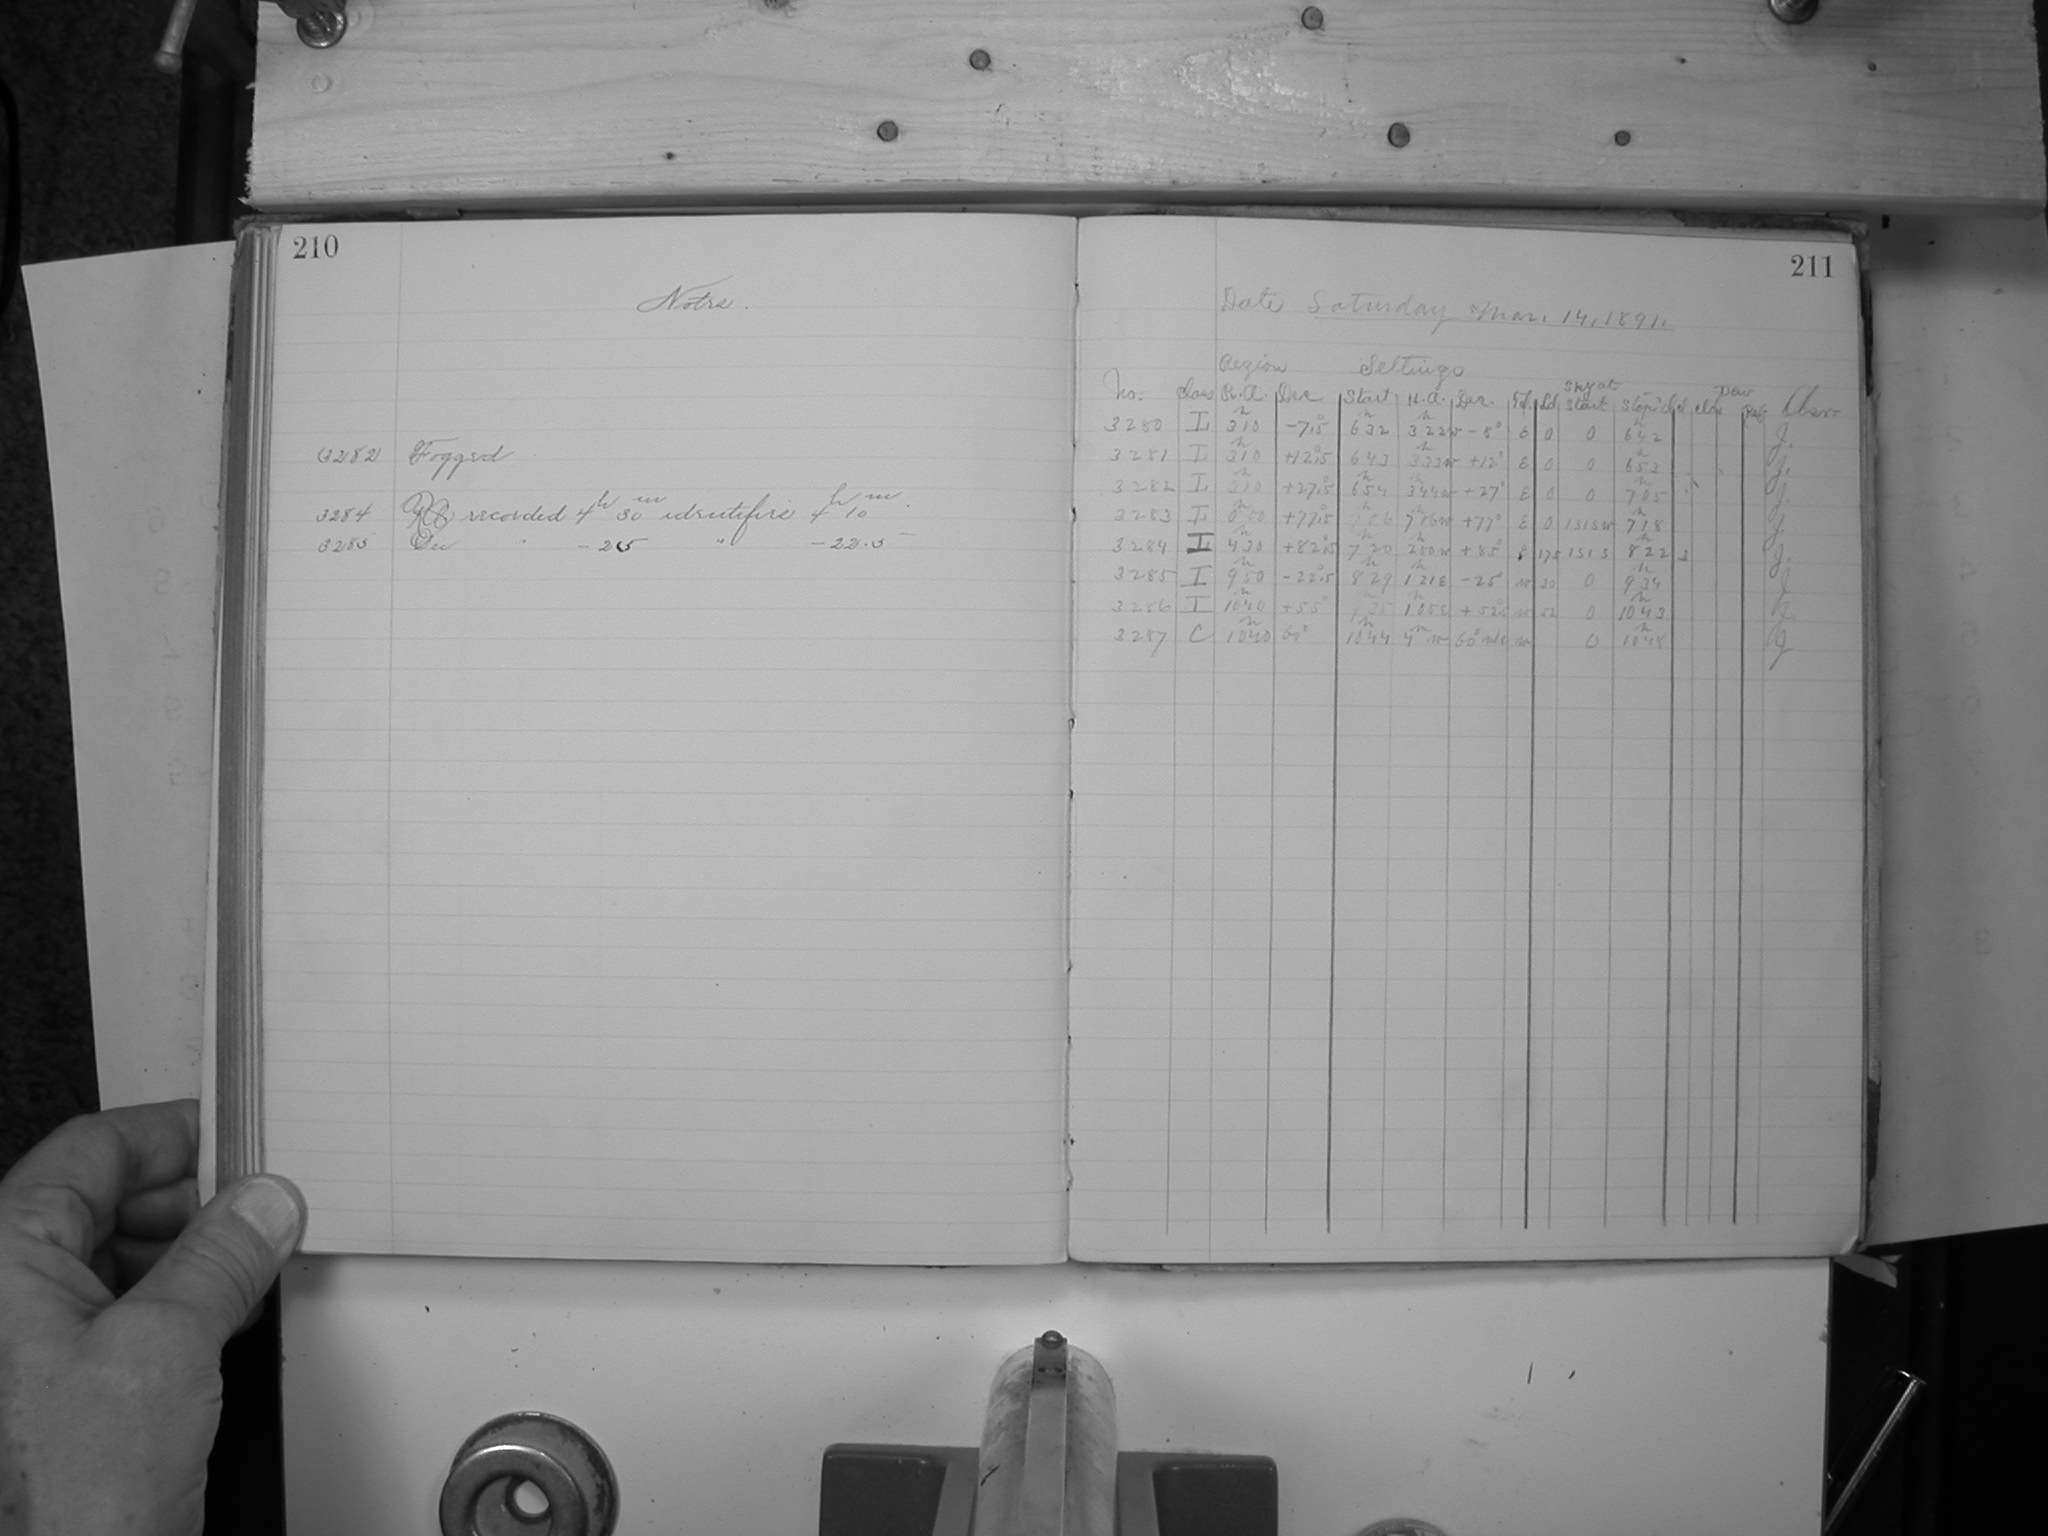 210
Notes.
3282 Fogged
3284 RA recorded 4h 30m identifies 4h 10m.
3285 Dec " -25 " -22.5
211
Date Saturday Mar. 14, 1891.
Region Settings
No. Class R.A. Dec. Start H.A. Dec. Sky at Start Stop Clos Dew Ref Obser
3280 L 3h10 -7°.5 6h32 3h22w -8° E 0 0 6h42 J.
3281 L 3h10 +12°.5 6h43 3h33w +12° E 0 0 6h53 J.
3282 L 3h10 +27°.5 6h54 3h44w +27° E 0 0 7h05 J.
3283 L 0h00 +77°.5 7h06 7h06w +77° E 0 1515w 7h18 J.
3284 I 4h30 +82°.5 7h20 2h50w +85° E 175 1515 8h22 3 J.
3285 I 9h50 -22°.5 8h29 1h21E -25° w 30 0 9h34 J
3286 I 10h40 +55° 9h35 1h05E +52°.5 w 52 0 10h43 J
3287 C 10h40 60° 10h44 4m w 60° w 0 10h48 J